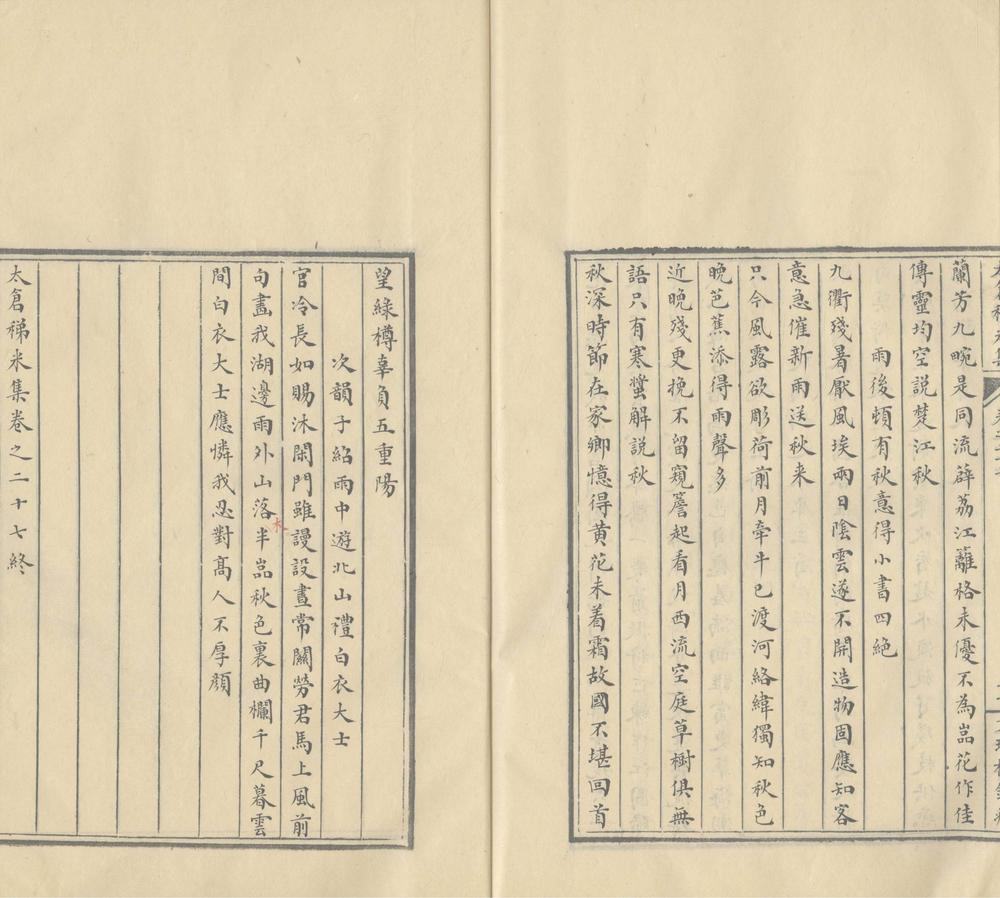 蘭芳九畹是同流薜荔江蘺格未優不為嵓花作佳
傳靈均空説楚江秋
雨後頓有秋意得小書四絶
九衢殘暑厭風埃兩日陰雲遂不開造物固應知客
意急催新雨送秋来
只今風露欲彫荷前月牽牛已渡河絡緯獨知秋色
晚芭蕉添得雨聲多
近晚殘更挽不留窺簷起看月西流空庭草樹俱無
語只有寒螿解説秋
秋深時節在家鄉憶得黄花未着霜故國不堪回首
望緑樽辜負五重陽
次韻子紹雨中遊北山禮白衣大士
官冷長如賜沐閑門雖謾設晝常關勞君馬上風前
句畫我湖邊雨外山落半嵓秋色裏曲欄千尺暮雲
木
間白衣大士應憐我忍對高人不厚顔
太倉稊米集卷之二十七終